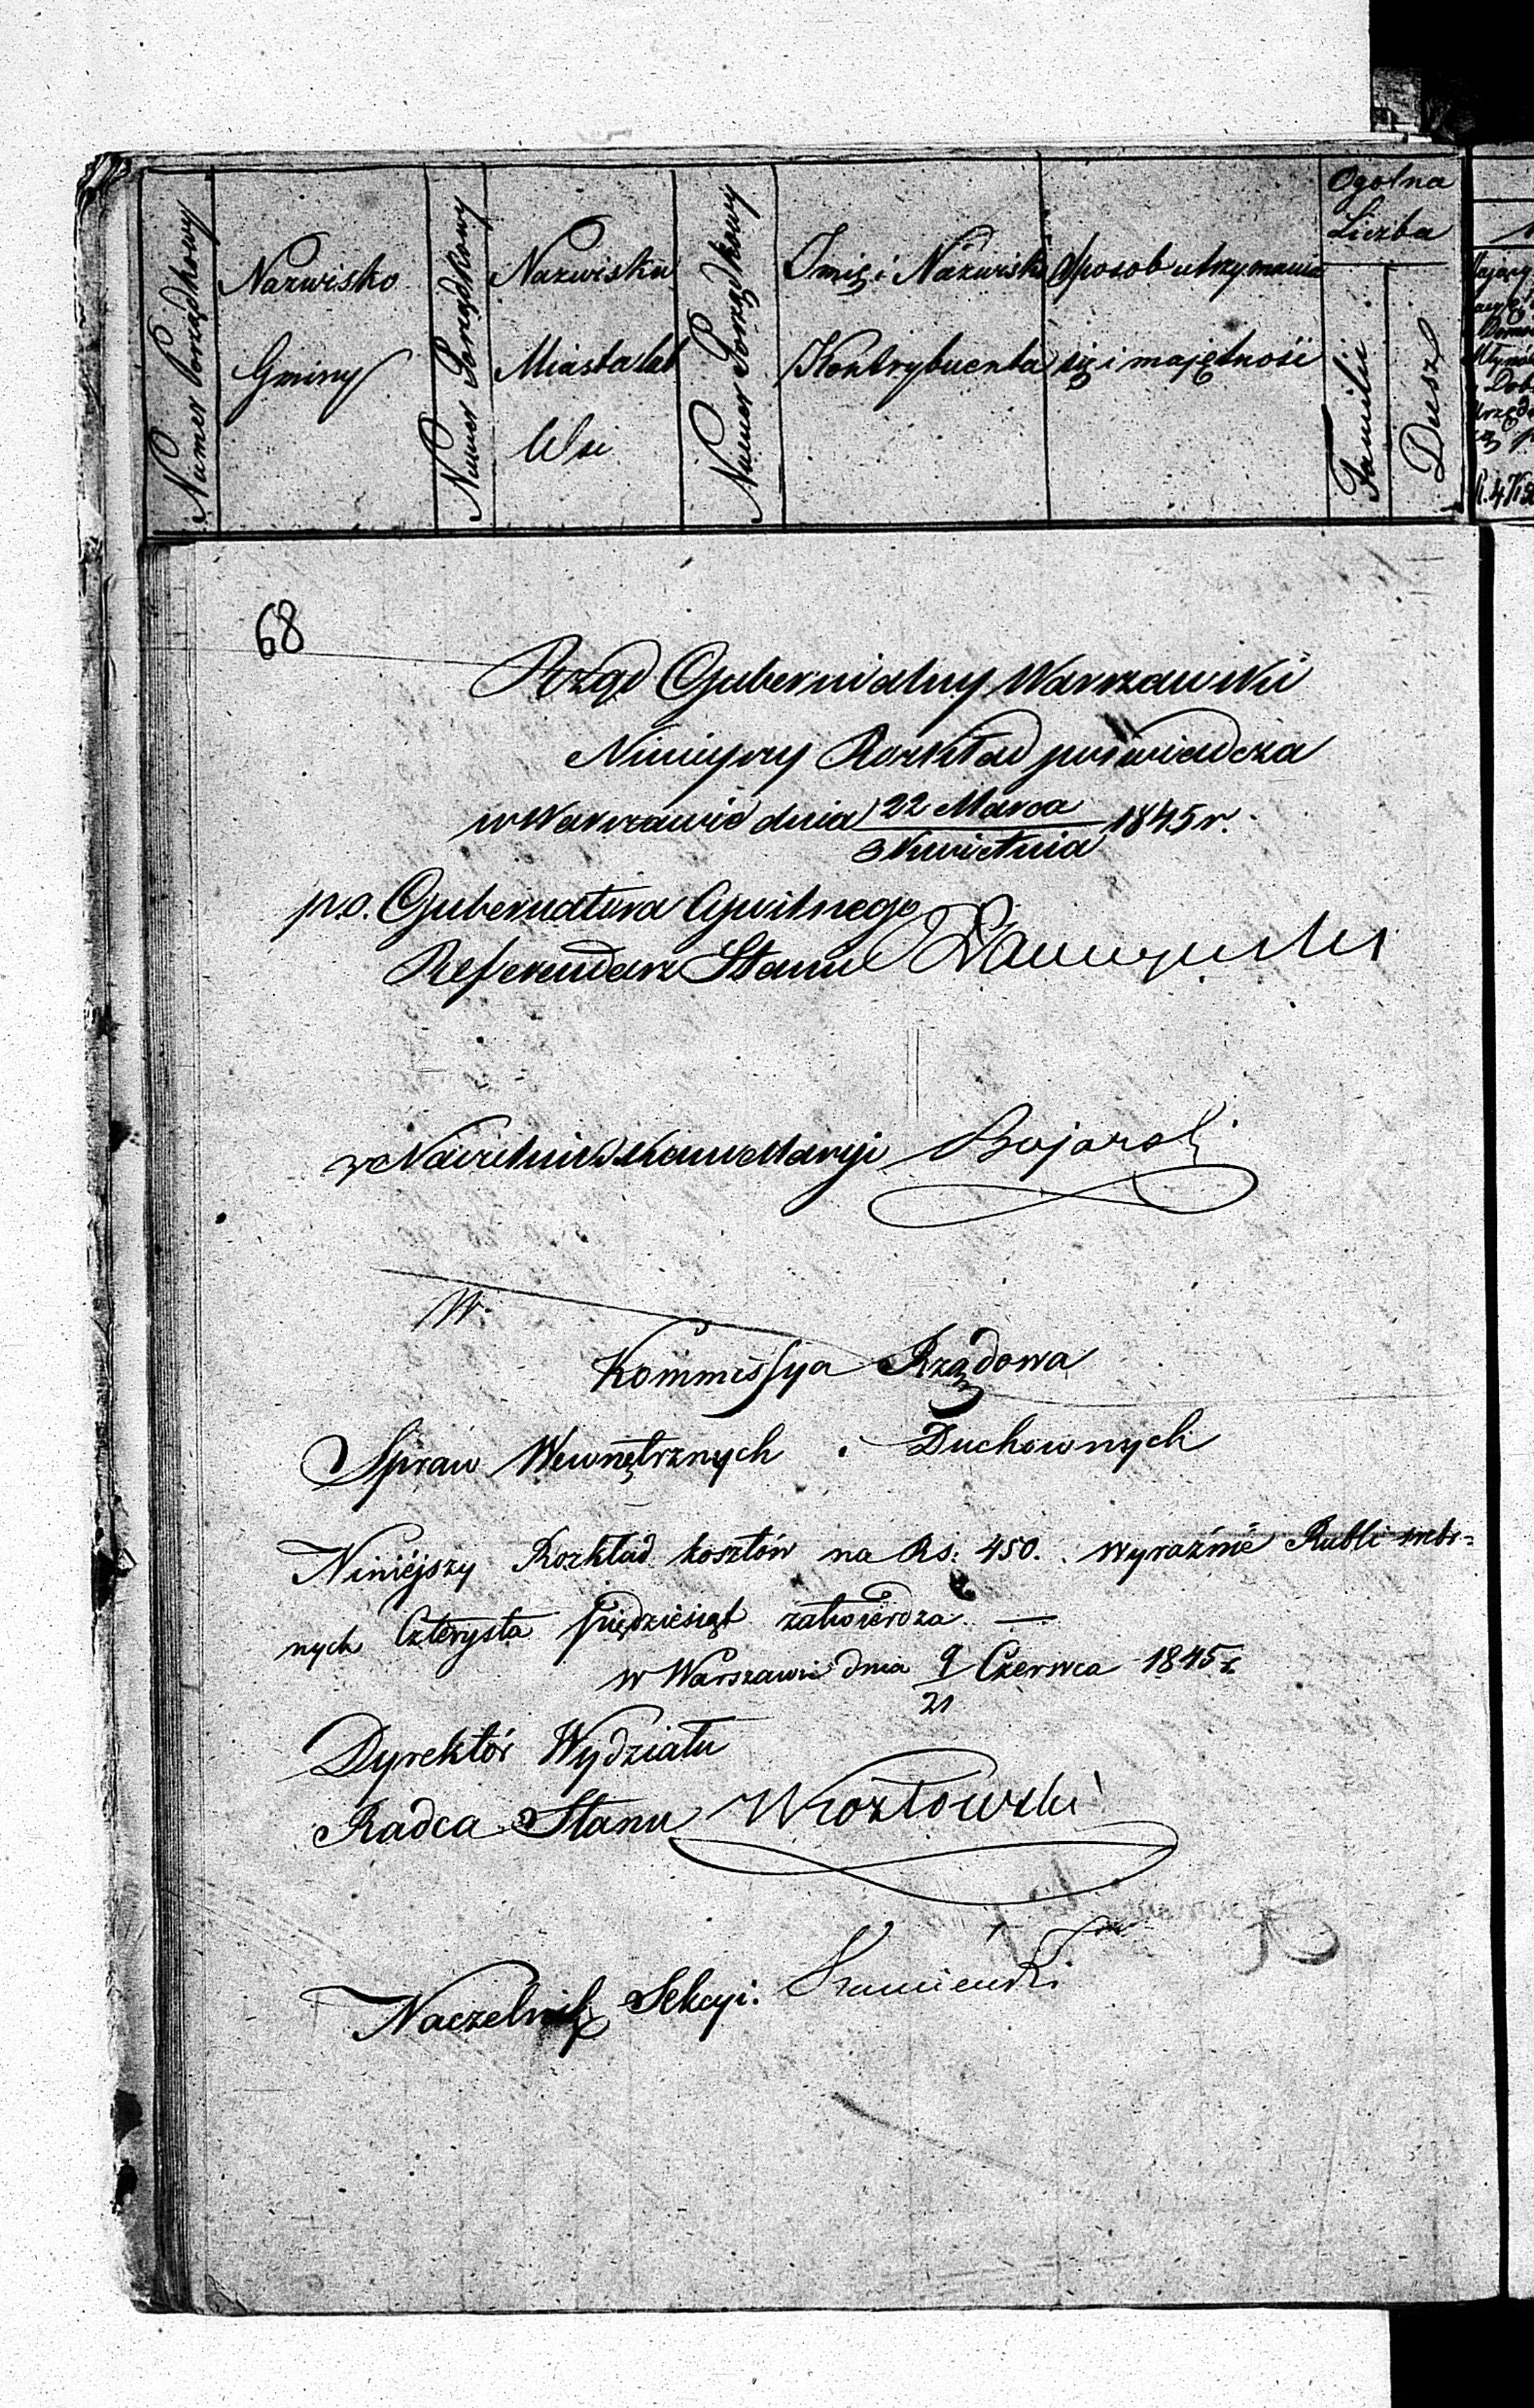 Numer Porządkowy
Nazwisko
Gminy
Numer Porządkowy
Nazwisko
Miasta lub
Wsi
Numer Porządkowy
Imię i Nazwisko
Kontrybuenta
Sposob utrzymania
się i majętność
Ogolna
Liczba
Familii
Dusz
68
Rząd Gubernialny Warszawski
Niniejszy Rozkład poświadcza
w Warszawie dnia 22 Marca
3 Kwietnia 1845 r.
p.o. Gubernatora Cywilnego
Referendarz Stanu
Naczelnik Kancellaryi Bojarski
W.
Kommissya Rządowa
Spraw Wewnętrznych i Duchownych
Niniéjszy Rozkład kosztów na Rs: 450. wyraźnie Rubli srebr-
nych Czterysta pięćdziesiąt zatwierdza. —
w Warszawie dnia 9/21 Czerwca 1845 r.
Dyrektór Wydziału
Radca Stanu Kozłowski
Naczelnik Sekcyi.